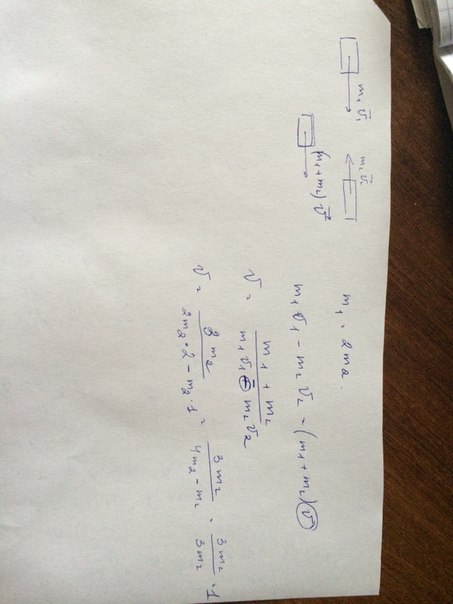 m₁ v̄₁ m₂ v̄₂
(m₁ + m₂) v̄
m₁ = 2m₂.
m₁v₁ − m₂v₂ = (m₁ + m₂)v
v = (m₁ + m₂) / (m₁v₁ − m₂v₂)
v = 3m₂ / (2m₂·2 − m₂·1) = 3m₂ / (4m₂ − m₂) = 3m₂ / 3m₂ = 1